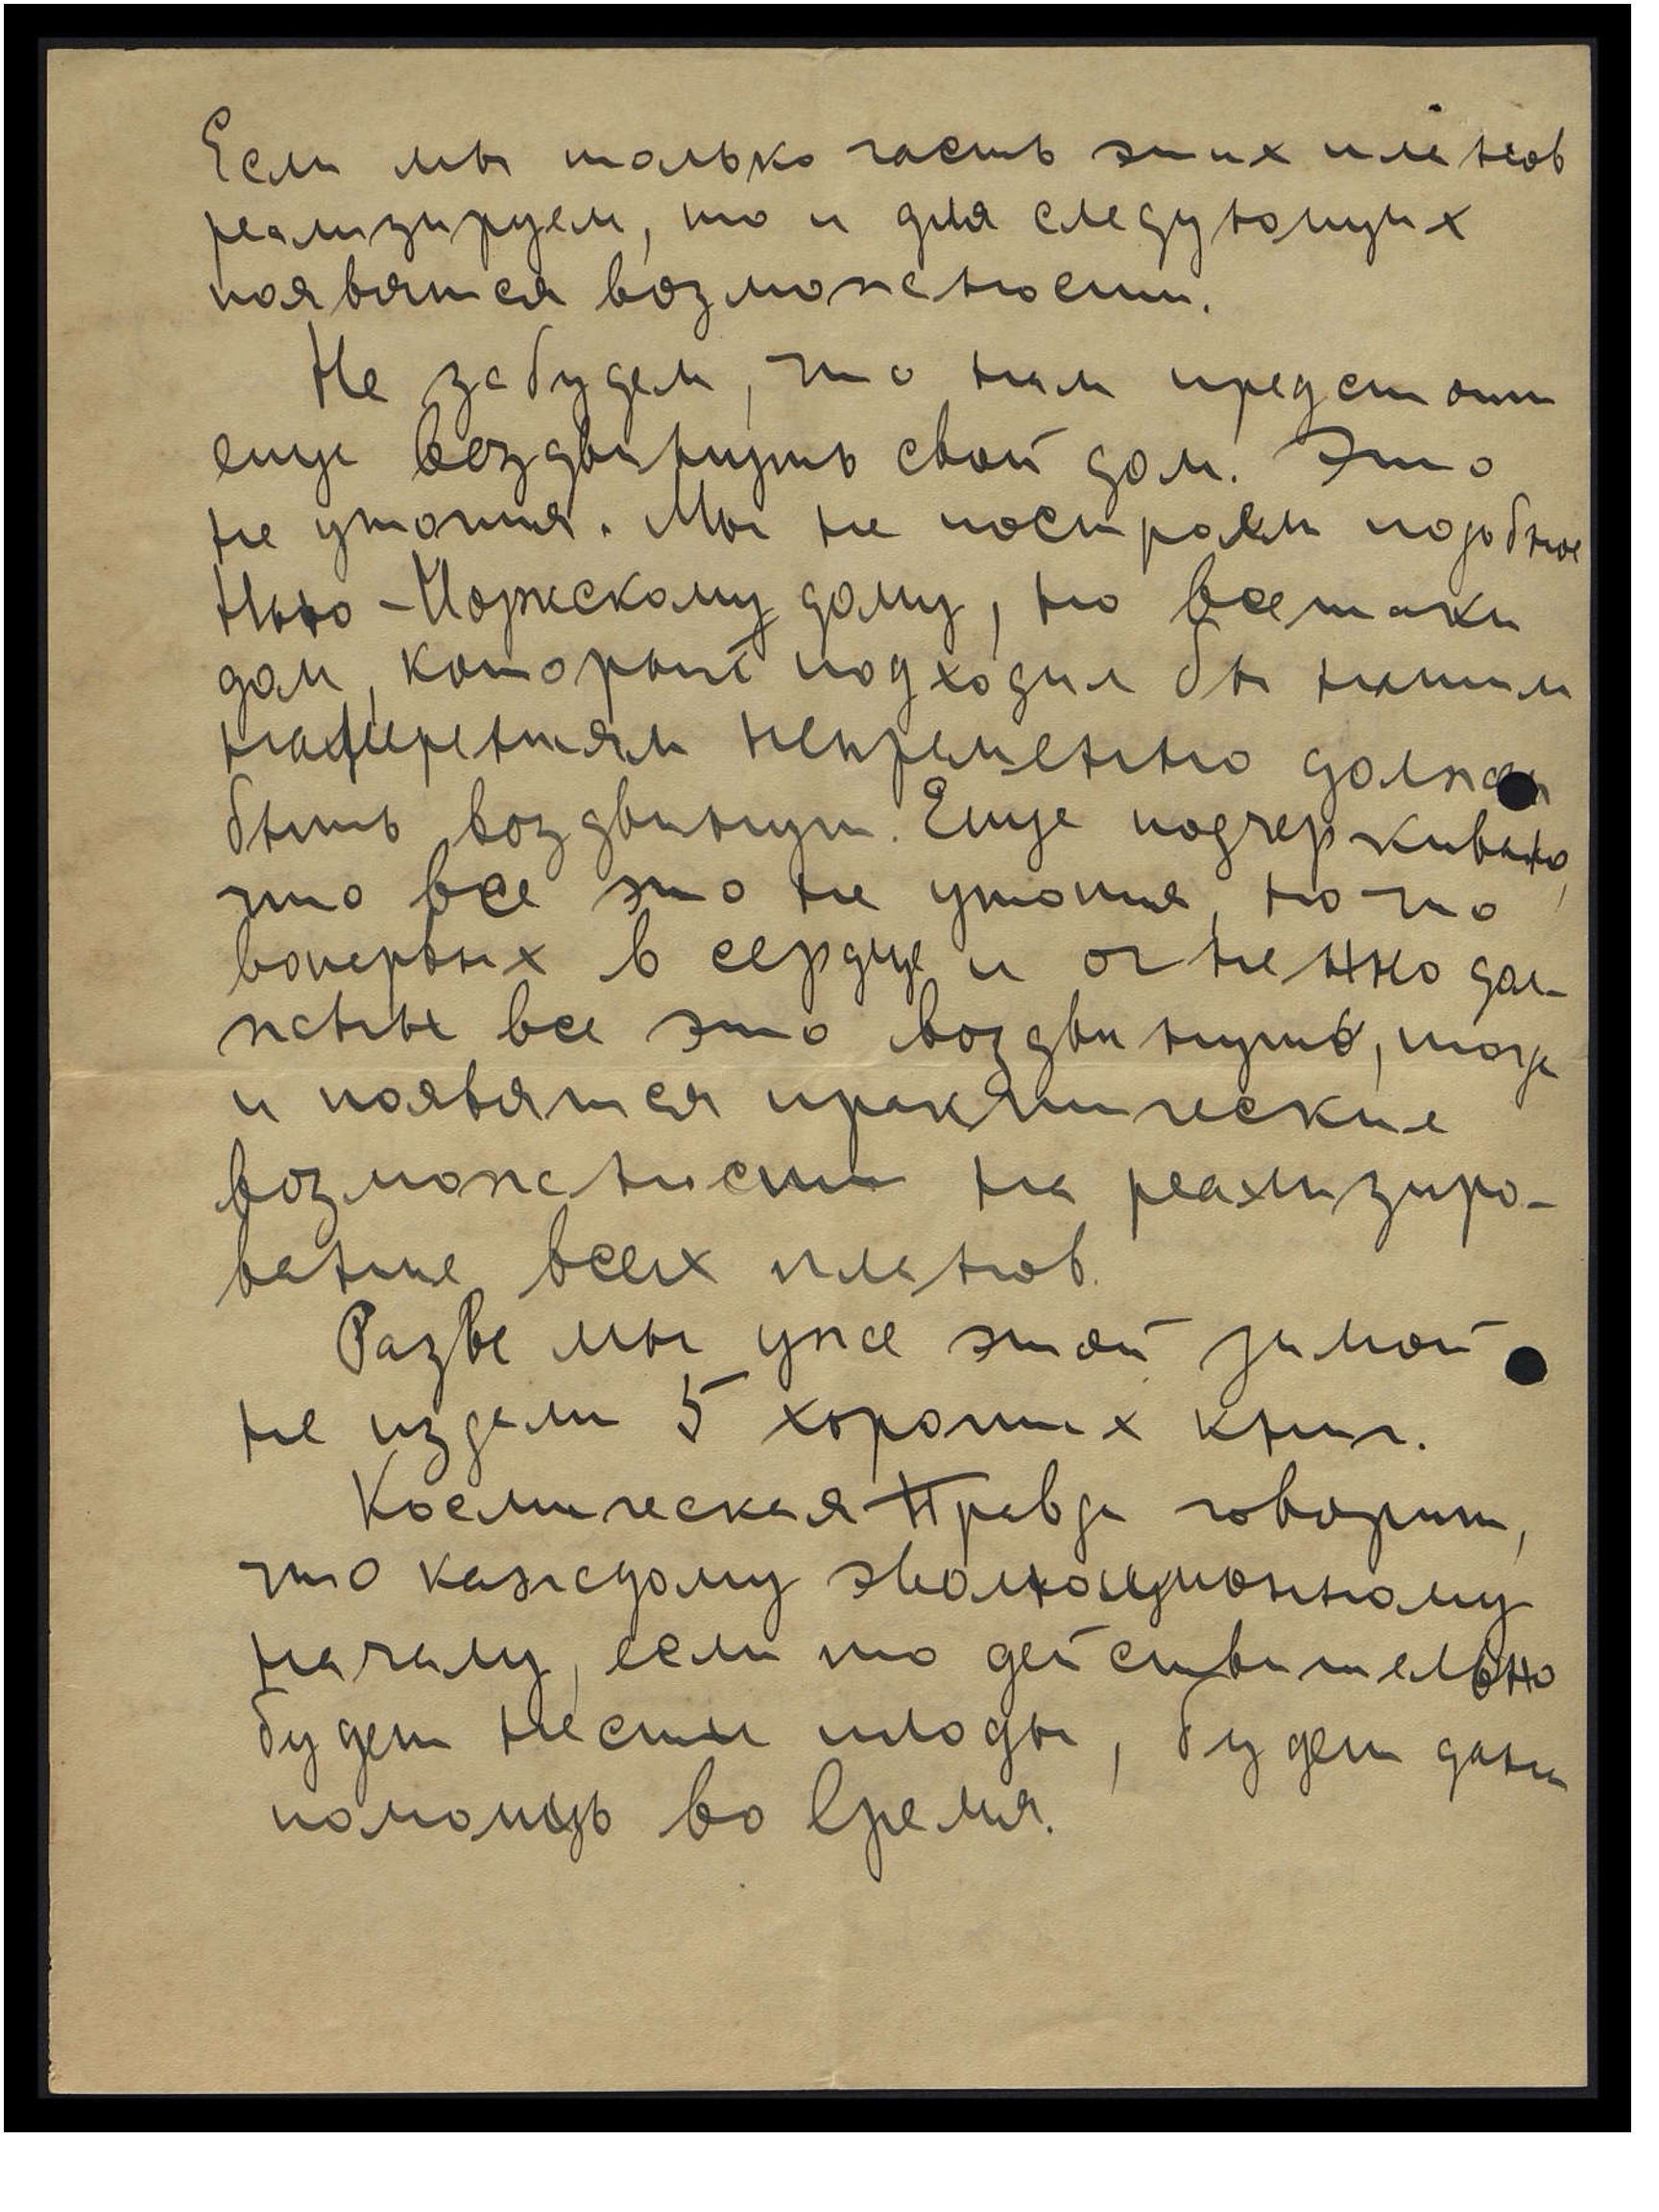 Если мы только часть этих планов
реализируем, то и для следующих
появятся возможности.
Не забудем, что нам предстоит
еще воздвигнуть свой дом. Это
не утопия. Мы не построим подобное
Нью-Иоркскому дому, но всетаки
дом, который подходил бы нашим
намерениям непременно должен
быть воздвигнут. Еще подчеркиваю,
что все это не утопия, но что
вопервых в сердце и огненно дол-
жны все это воздвигнуть, тогда
и появятся практические
возможности на реализиро-
вание всех планов.
Разве мы уже этой зимой
не издали 5 хороших книг.
Космическая Правда говорит,
что каждому эволюционному
началу, если то действительно
будет нести плоды, будет дана
помощь во время.